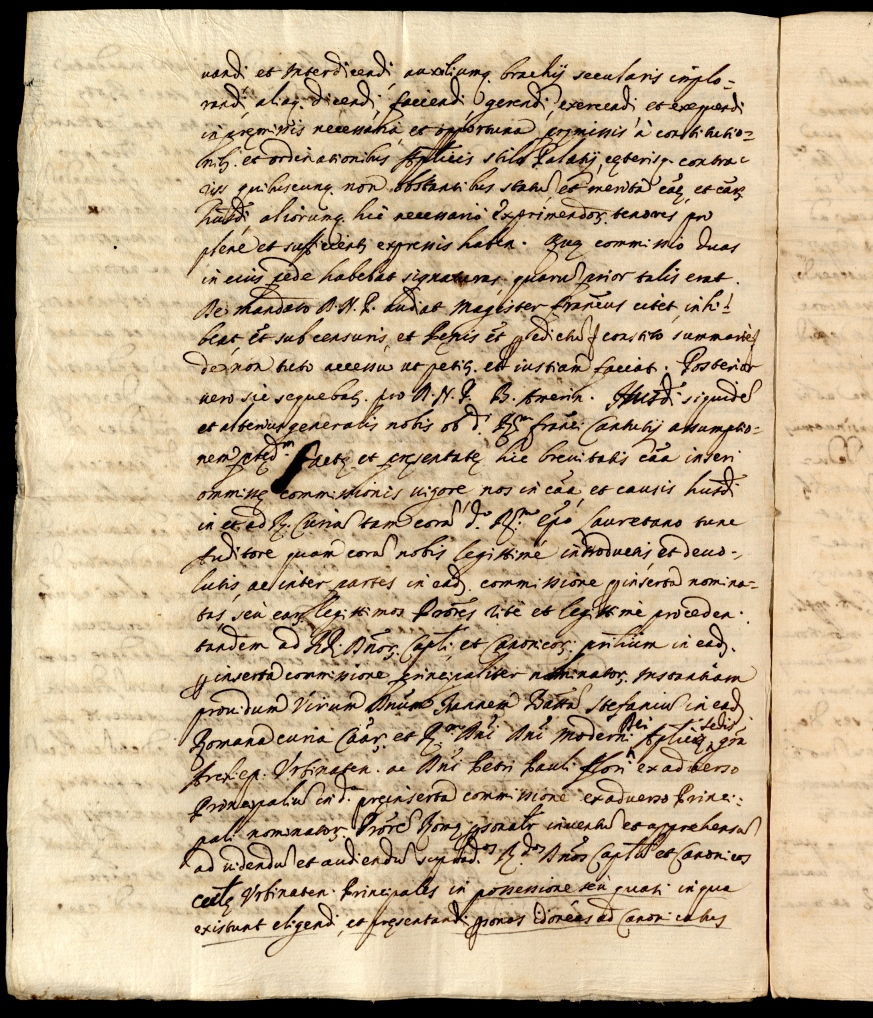 uandi et Interdicendi, auxiliumq. brachij secularis implo-
randi, aliaq. dicendi, faciendi, gerendi, exercendi et exequendi
in premissis necessaria, et opportuna premissis à constitutio-
nibq. et ordinationibus Aplicis stilo Palatij, ceterisq. contra
rijs quibuscunq. non obstantibus statu et merita caq. et car.
huiodi, aliorumq. hic necessario exprimendor. tenores pro
plene et sufficientr expressis haben. Que commissio duas
in eius pede habebat signaturas, quarum prior talis erat.
De mandato D. N. P. Audiat Magister Francus citet inhi-
beat et sub censuris, et penis et constito summarie
de non tuto accessu ut petiq. et iustiam faciat. Posterior
uero sic sequebatr. pro D. N. P. B. Amerin. Huiodi siquidem
et alterius generalis nobis ob d. Rmi Franci Cantutij assumptio-
nem facte et presentate hic breuitatis caa inseri
ommisse commissionis uigore nos in caa, et causis huiodi
in et ad R. Curia tam coram d. Rmo Epo Lauretano tunc
Auditore quam coram nobis legittime introductis et deuo-
lutis ac inter partes in ead. commissione preinserta nomina-
tas seu ear. legittimos Prores rite et legittime proceden.
tandem ad RR. Dnor. Capli, et Canonicor. prilium in ead.
preinserta commissione principaliter nominator. Instantiam
prouidum Virum Dnum Joannem Battam Stefaniu in ead
Romana curia Caar. et Rmi Dni Dni Moderni Dei Aplice sedis gra
Archiep. Urbinaten. ac Dni Petri Pauli Flori ex aduerso
Principaliu in d. preinserta commissione ex aduerso Princi-
pali nominator. Prore Rom. psonalr inuentu et apprehensu
ad uidendu et audiendu suprad.os R.dos Dnos Caplu et Canonicos
eccle Urbinaten. Principales in possessione seu quasi in qua
existunt eligendi, et presentandi psonas idoneas ad Canonicatus